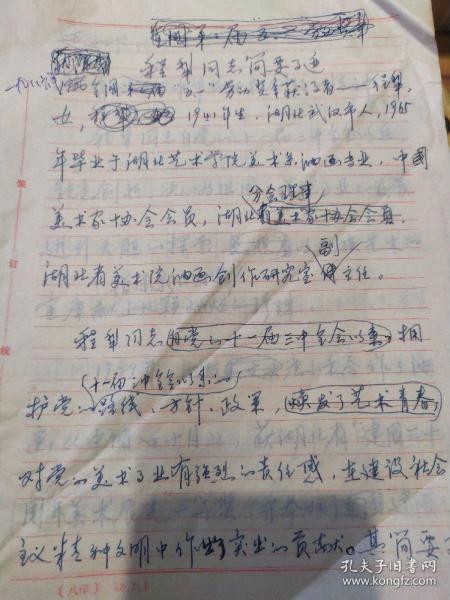 程犁同志简要事迹
全国"五一"劳动奖章获得者——程犁,
女, 1941年生,湖北武汉市人,1965
年毕业于湖北艺术学院美术系油画专业,中国
分会理事
美术家协会会员,湖北省美术家协会会员,
副
湖北省美术院油画创作研究室主任。
程犁同志自党的十一届三中全会以来,拥
十一届三中全会以来的
护党的路线、方针、政策,焕发了艺术青春,
对党的美术事业有强烈的责任感,在建设社会
主义精神文明中作出了突出的贡献。其简要
装
订
线
(八甲) 58.1.1
孔夫子旧书网